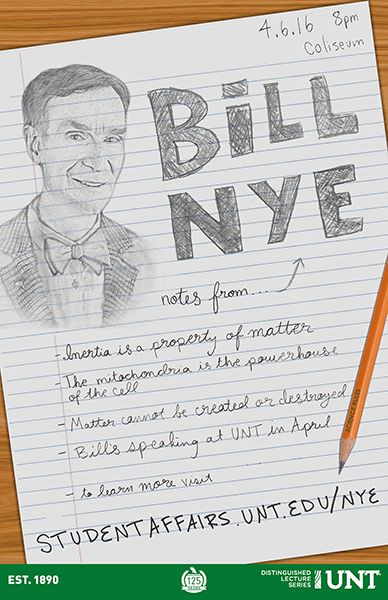 4.6.16 8pm
Coliseum
BiLL
NYE
notes from...
-Inertia is a property of matter
-The mitochondria is the powerhouse
of the cell
-Matter cannot be created or destroyed
-Bill's speaking at UNT in April
-to learn more visit
STUDENTAFFAIRS.UNT.EDU/NYE
SCIENCE RULES
EST. 1890
125
YEARS
DISTINGUISHED
LECTURE
SERIES
UNT